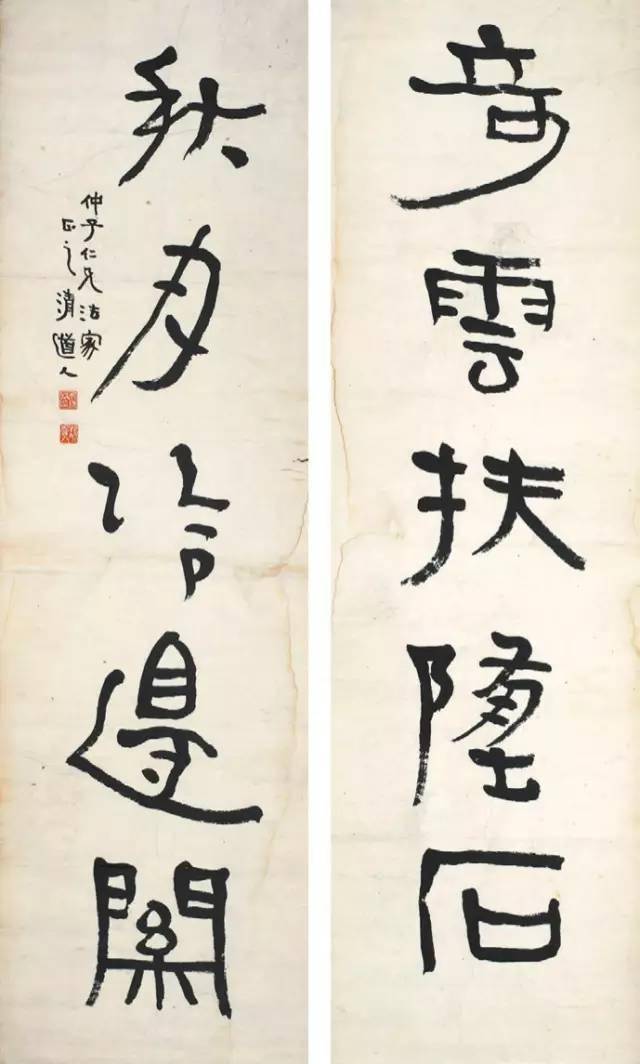 竒雲扶墮石
秋月冷邊關
仲子仁兄法家
正之 清道人